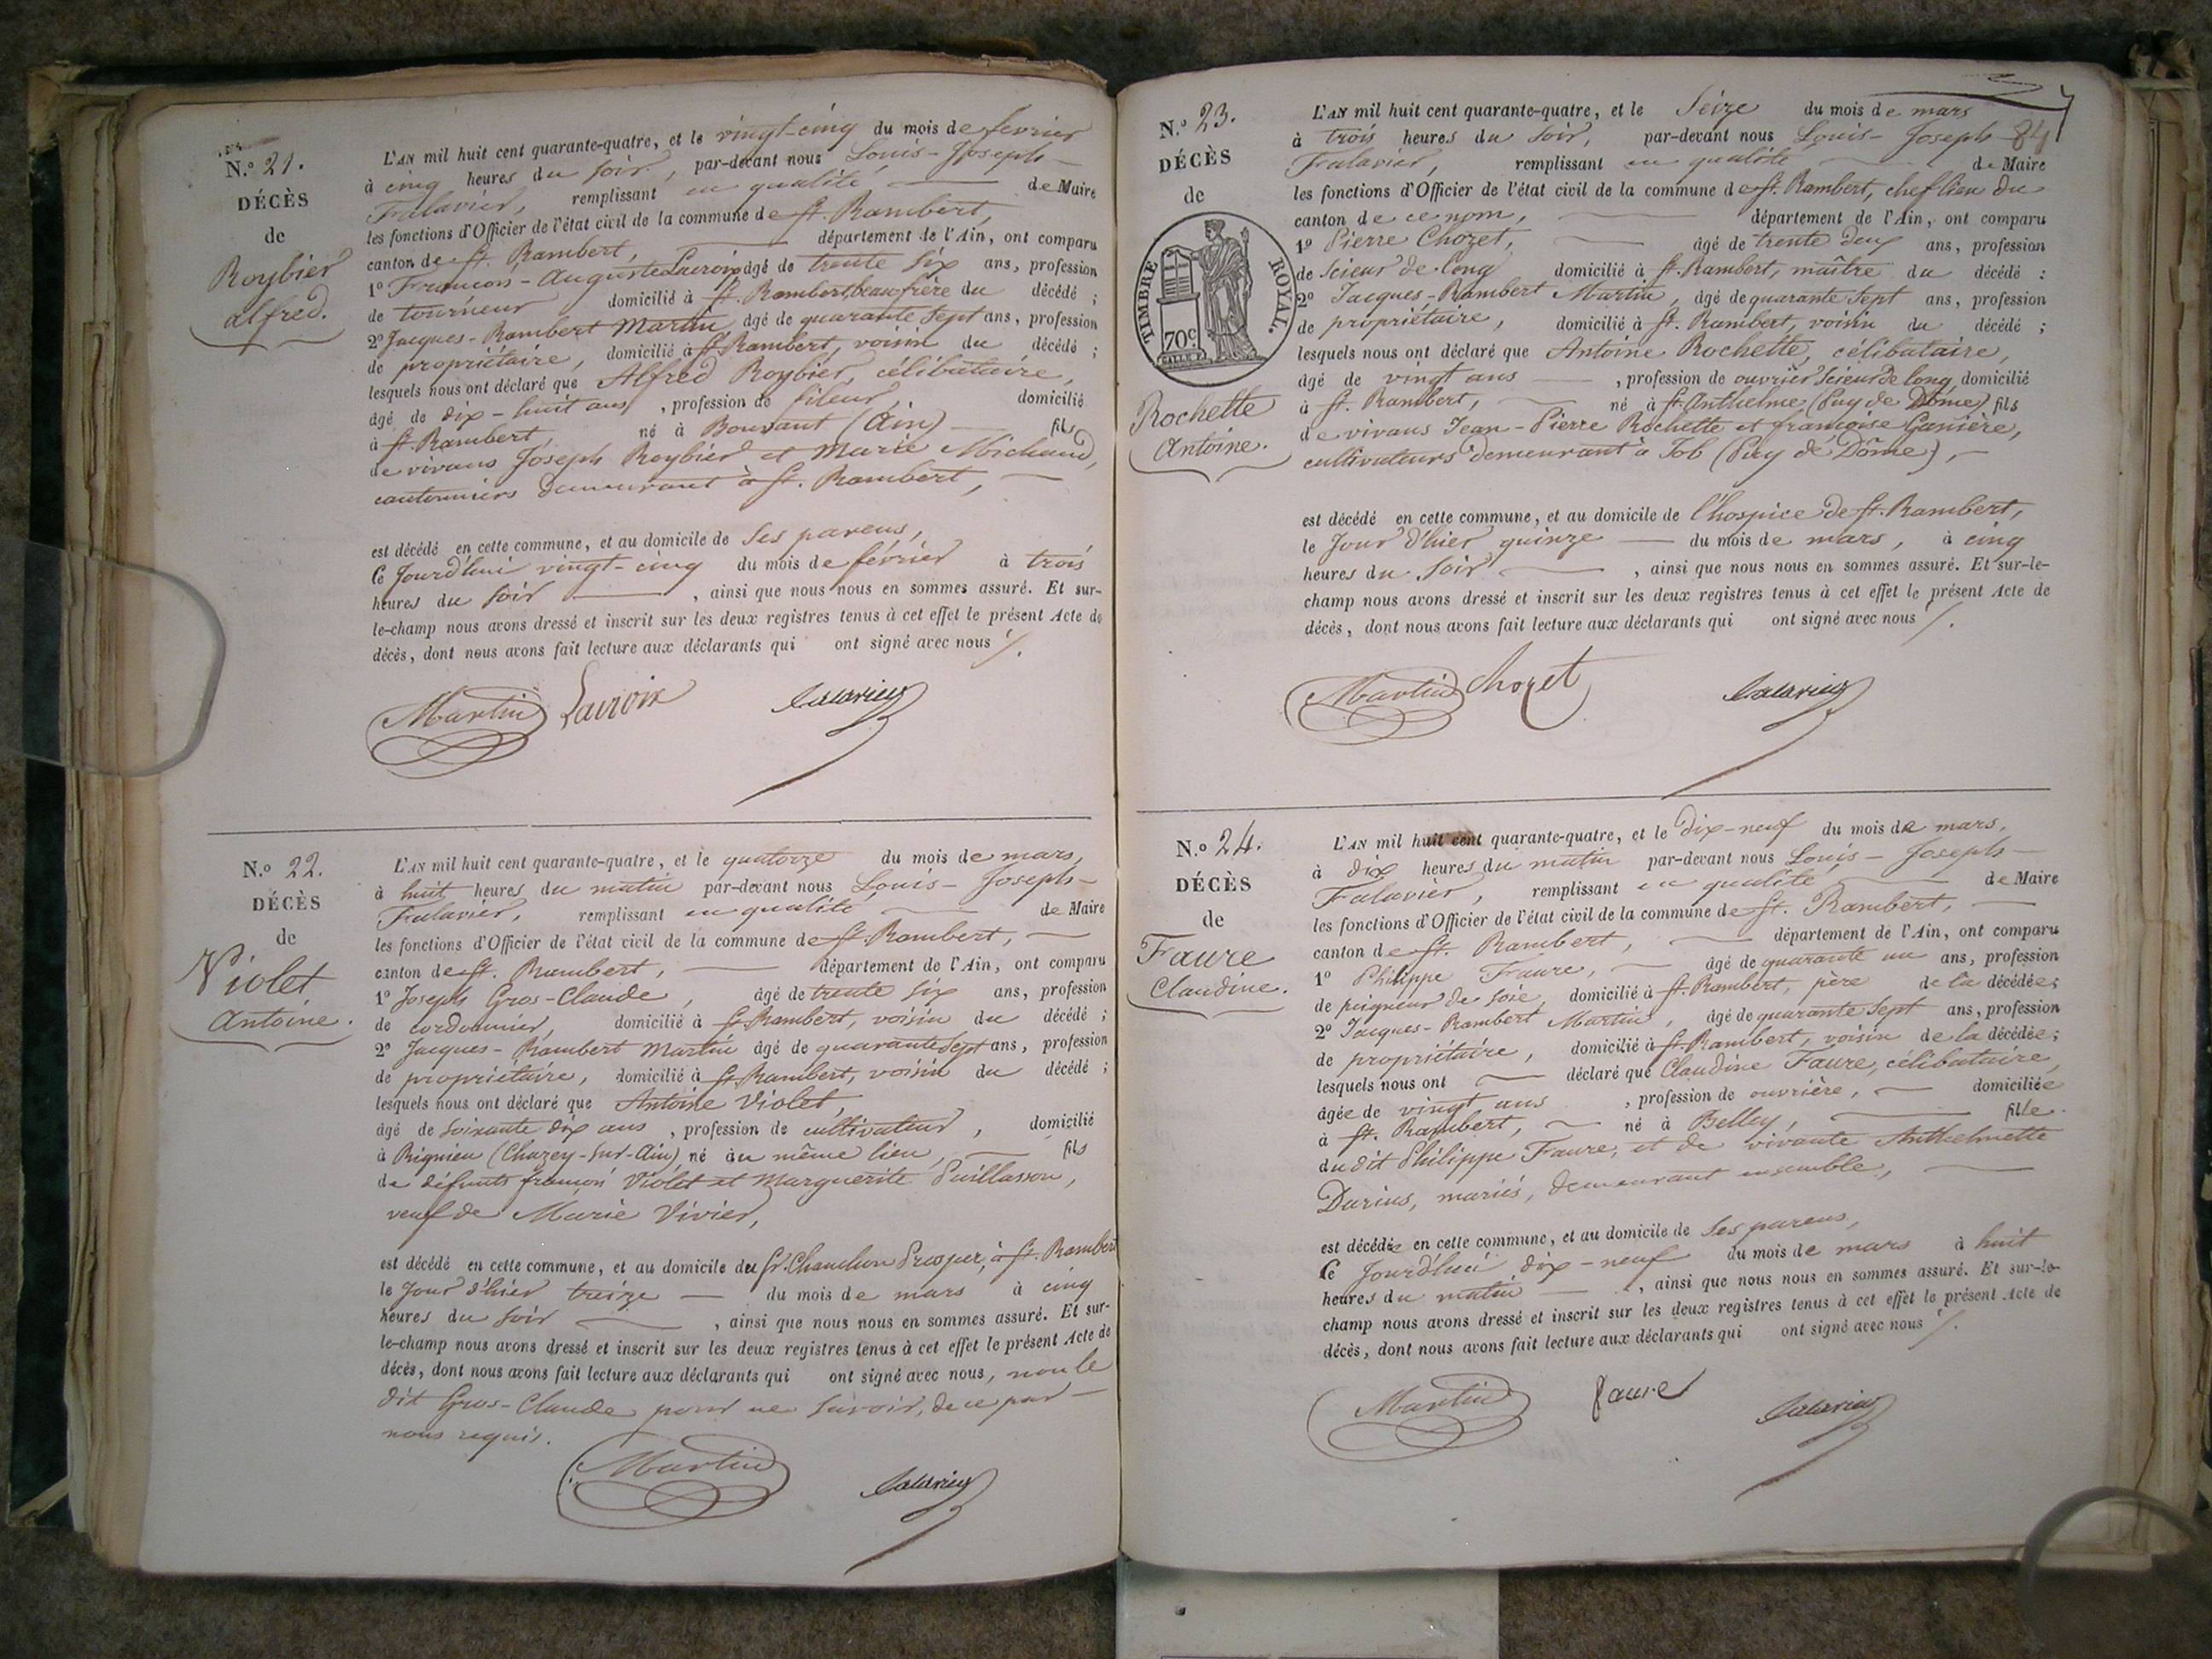 N.o 21.
DÉCÈS
de
Roybier
alfred.
L'AN mil huit cent quarante-quatre, et le vingt-cinq du mois de fevrier
à cinq heures du soir, par-devant nous Louis-Joseph-
Falavier, remplissant en qualité de Maire
les fonctions d'Officier de l'état civil de la commune de St. Rambert,
canton de St. Rambert, département de l'Ain, ont comparu
1o François-Auguste Lacroix âgé de trente six ans, profession
de tourneur domicilié à St. Rambert, beau frère du décédé ;
2o Jacques-Rambert Martin, âgé de quarante sept ans, profession
de propriétaire, domicilié à St. Rambert, voisin du décédé ;
lesquels nous ont déclaré que Alfred Roybier, célibataire,
âgé de dix-huit ans, profession de fileur, domicilié
à St. Rambert, né à Bouvant (Ain) fils
de vivans Joseph Roybier et Marie Michaud,
cantonniers demeurant à St. Rambert,
est décédé en cette commune, et au domicile de ses parens,
Ce jourd'hui vingt-cinq du mois de février à trois
heures du soir, ainsi que nous nous en sommes assuré. Et sur-
le-champ nous avons dressé et inscrit sur les deux registres tenus à cet effet le présent Acte de
décès, dont nous avons fait lecture aux déclarants qui ont signé avec nous /.
Martin Lacroix Falavier
N.o 22.
DÉCÈS
de
Violet
Antoine.
L'AN mil huit cent quarante-quatre, et le quatorze du mois de mars,
à huit heures du matin par-devant nous Louis-Joseph-
Falavier, remplissant en qualité de Maire
les fonctions d'Officier de l'état civil de la commune de St. Rambert,
canton de St. Rambert, département de l'Ain, ont comparu
1o Joseph Gros-Claude, âgé de trente six ans, profession
de cordonnier, domicilié à St. Rambert, voisin du décédé ;
2o Jacques-Rambert Martin âgé de quarante sept ans, profession
de propriétaire, domicilié à St. Rambert, voisin du décédé ;
lesquels nous ont déclaré que Antoine Violet,
âgé de soixante dix ans, profession de cultivateur, domicilié
à Rignieu (Chazey-sur-Ain) né au même lieu, fils
de défunts françois Violet et Marguerite Puillasson,
veuf de Marie Vivier,
est décédé en cette commune, et au domicile du Sr. Chambon Prosper, à St. Rambert
le jour d'hier treize du mois de mars à cinq
heures du soir, ainsi que nous nous en sommes assuré. Et sur-
le-champ nous avons dressé et inscrit sur les deux registres tenus à cet effet le présent Acte de
décès, dont nous avons fait lecture aux déclarants qui ont signé avec nous, non le
dit Gros-Claude pour ne savoir, de ce par
nous requis.
Martin Falavier
N.o 23.
DÉCÈS
de
TIMBRE ROYAL.
70c
Rochette
Antoine.
84
L'AN mil huit cent quarante-quatre, et le seize du mois de mars
à trois heures du soir, par-devant nous Louis-Joseph-
Falavier, remplissant en qualité de Maire
les fonctions d'Officier de l'état civil de la commune de St. Rambert, chef lieu du
canton de ce nom, département de l'Ain, ont comparu
1o Pierre Chozet, âgé de trente deux ans, profession
de scieur de long domicilié à St. Rambert, maître du décédé :
2o Jacques-Rambert Martin, âgé de quarante sept ans, profession
de propriétaire, domicilié à St. Rambert, voisin du décédé ;
lesquels nous ont déclaré que Antoine Rochette, célibataire,
âgé de vingt ans, profession de ouvrier scieur de long, domicilié
à St. Rambert, né à St. Anthelme (Puy de Dôme) fils
de vivans Jean-Pierre Rochette et françoise Ganière,
cultivateurs demeurant à Job (Puy de Dôme),
est décédé en cette commune, et au domicile de l'hospice de St. Rambert,
le jour d'hier quinze du mois de mars, à cinq
heures du soir, ainsi que nous nous en sommes assuré. Et sur-le-
champ nous avons dressé et inscrit sur les deux registres tenus à cet effet le présent Acte de
décès, dont nous avons fait lecture aux déclarants qui ont signé avec nous /.
Martin Chozet Falavier
N.o 24.
DÉCÈS
de
Faure
Claudine.
L'AN mil huit cent quarante-quatre, et le dix-neuf du mois de mars,
à dix heures du matin par-devant nous Louis-Joseph-
Falavier, remplissant en qualité de Maire
les fonctions d'Officier de l'état civil de la commune de St. Rambert,
canton de St. Rambert, département de l'Ain, ont comparu
1o Philippe Faure, âgé de quarante un ans, profession
de peigneur de soie, domicilié à St. Rambert, père de la décédée;
2o Jacques-Rambert Martin, âgé de quarante sept ans, profession
de propriétaire, domicilié à St. Rambert, voisin de la décédée;
lesquels nous ont déclaré que Claudine Faure, célibataire,
âgée de vingt ans, profession de ouvrière, domiciliée
à St. Rambert, né à Belley, fille
du dit Philippe Faure, et de vivante Anthelmette
Darius, mariés, demeurant ensemble,
est décédée en cette commune, et au domicile de ses parens,
Ce jourd'hui dix-neuf du mois de mars à huit
heures du matin, ainsi que nous nous en sommes assuré. Et sur-le-
champ nous avons dressé et inscrit sur les deux registres tenus à cet effet le présent Acte de
décès, dont nous avons fait lecture aux déclarants qui ont signé avec nous /.
Martin faure Falavier